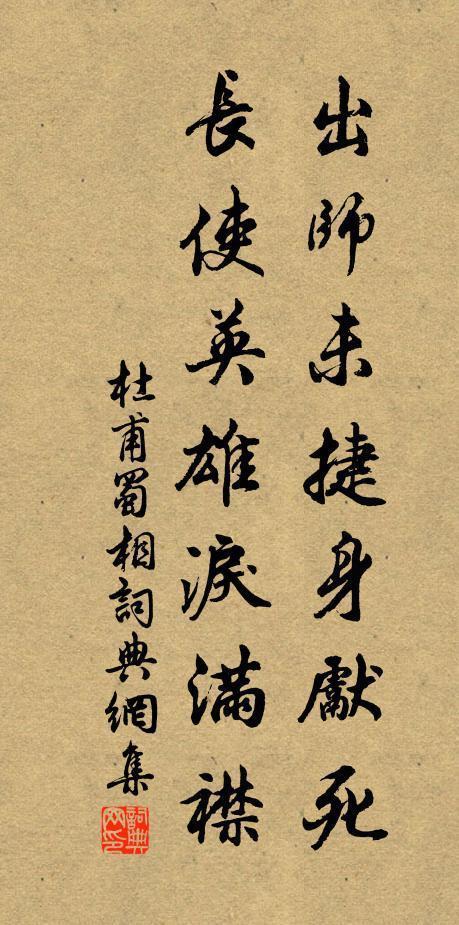 出師未捷身獻死
長使英雄淚滿襟
杜甫蜀相詞典網集
詞典
网印